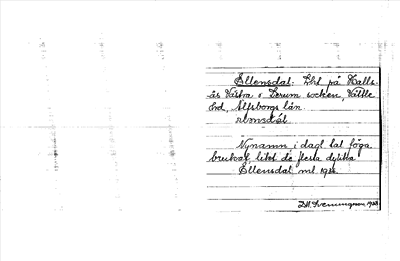 Ellensdal: Lht på Halls-
ås Västra i Lerum socken, Vättle
hd, Älfsborgs län.
Nynamn, i dagl. tal föga
brukat, likt de flesta dylika
Ellensdal ml. 1924
D.A. Svenungsson 1924